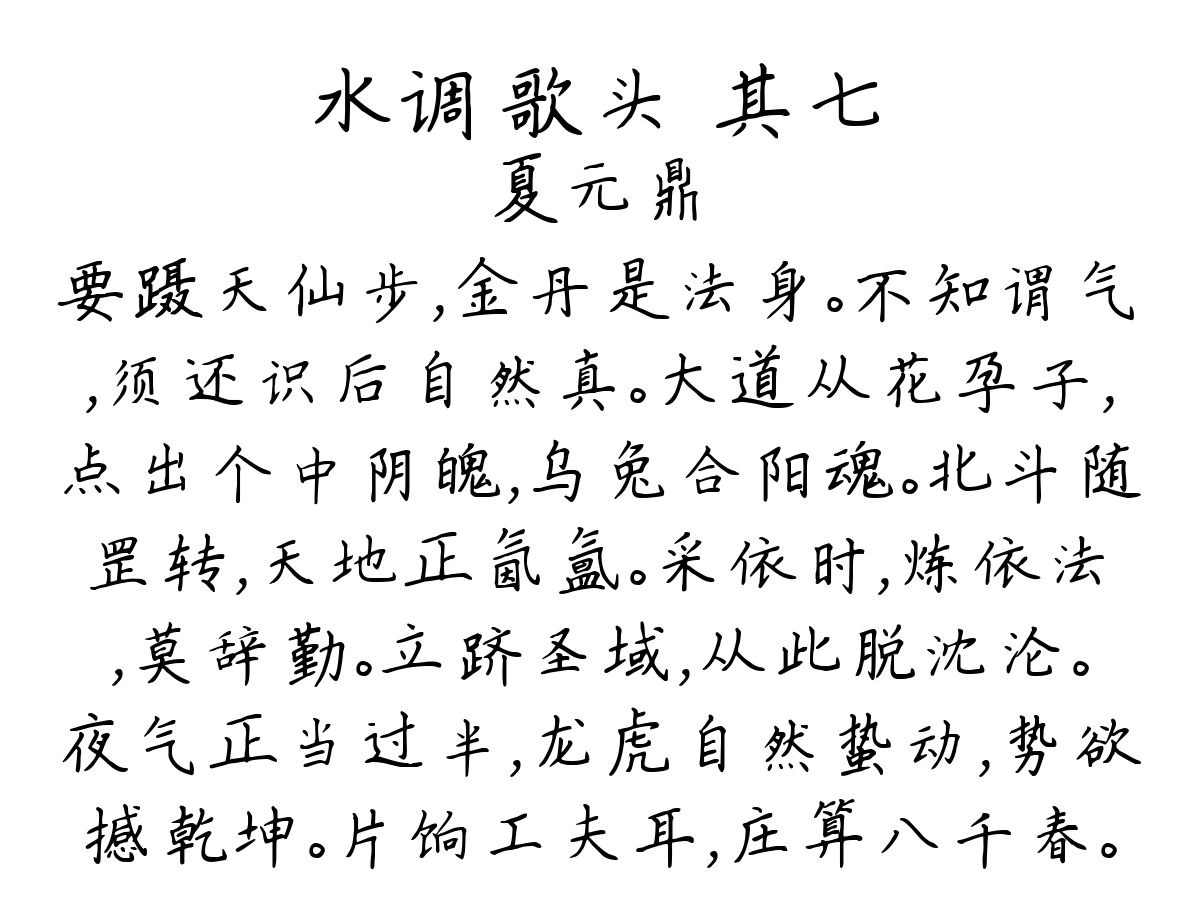 水调歌头 其七
夏元鼎
要蹑天仙步,金丹是法身。不知谓气
,须还识后自然真。大道从花孕子,
点出个中阴魄,乌兔合阳魂。北斗随
罡转,天地正氤氲。采依时,炼依法
,莫辞勤。立跻圣域,从此脱沈沦。
夜气正当过半,龙虎自然蛰动,势欲
撼乾坤。片饷工夫耳,庄算八千春。